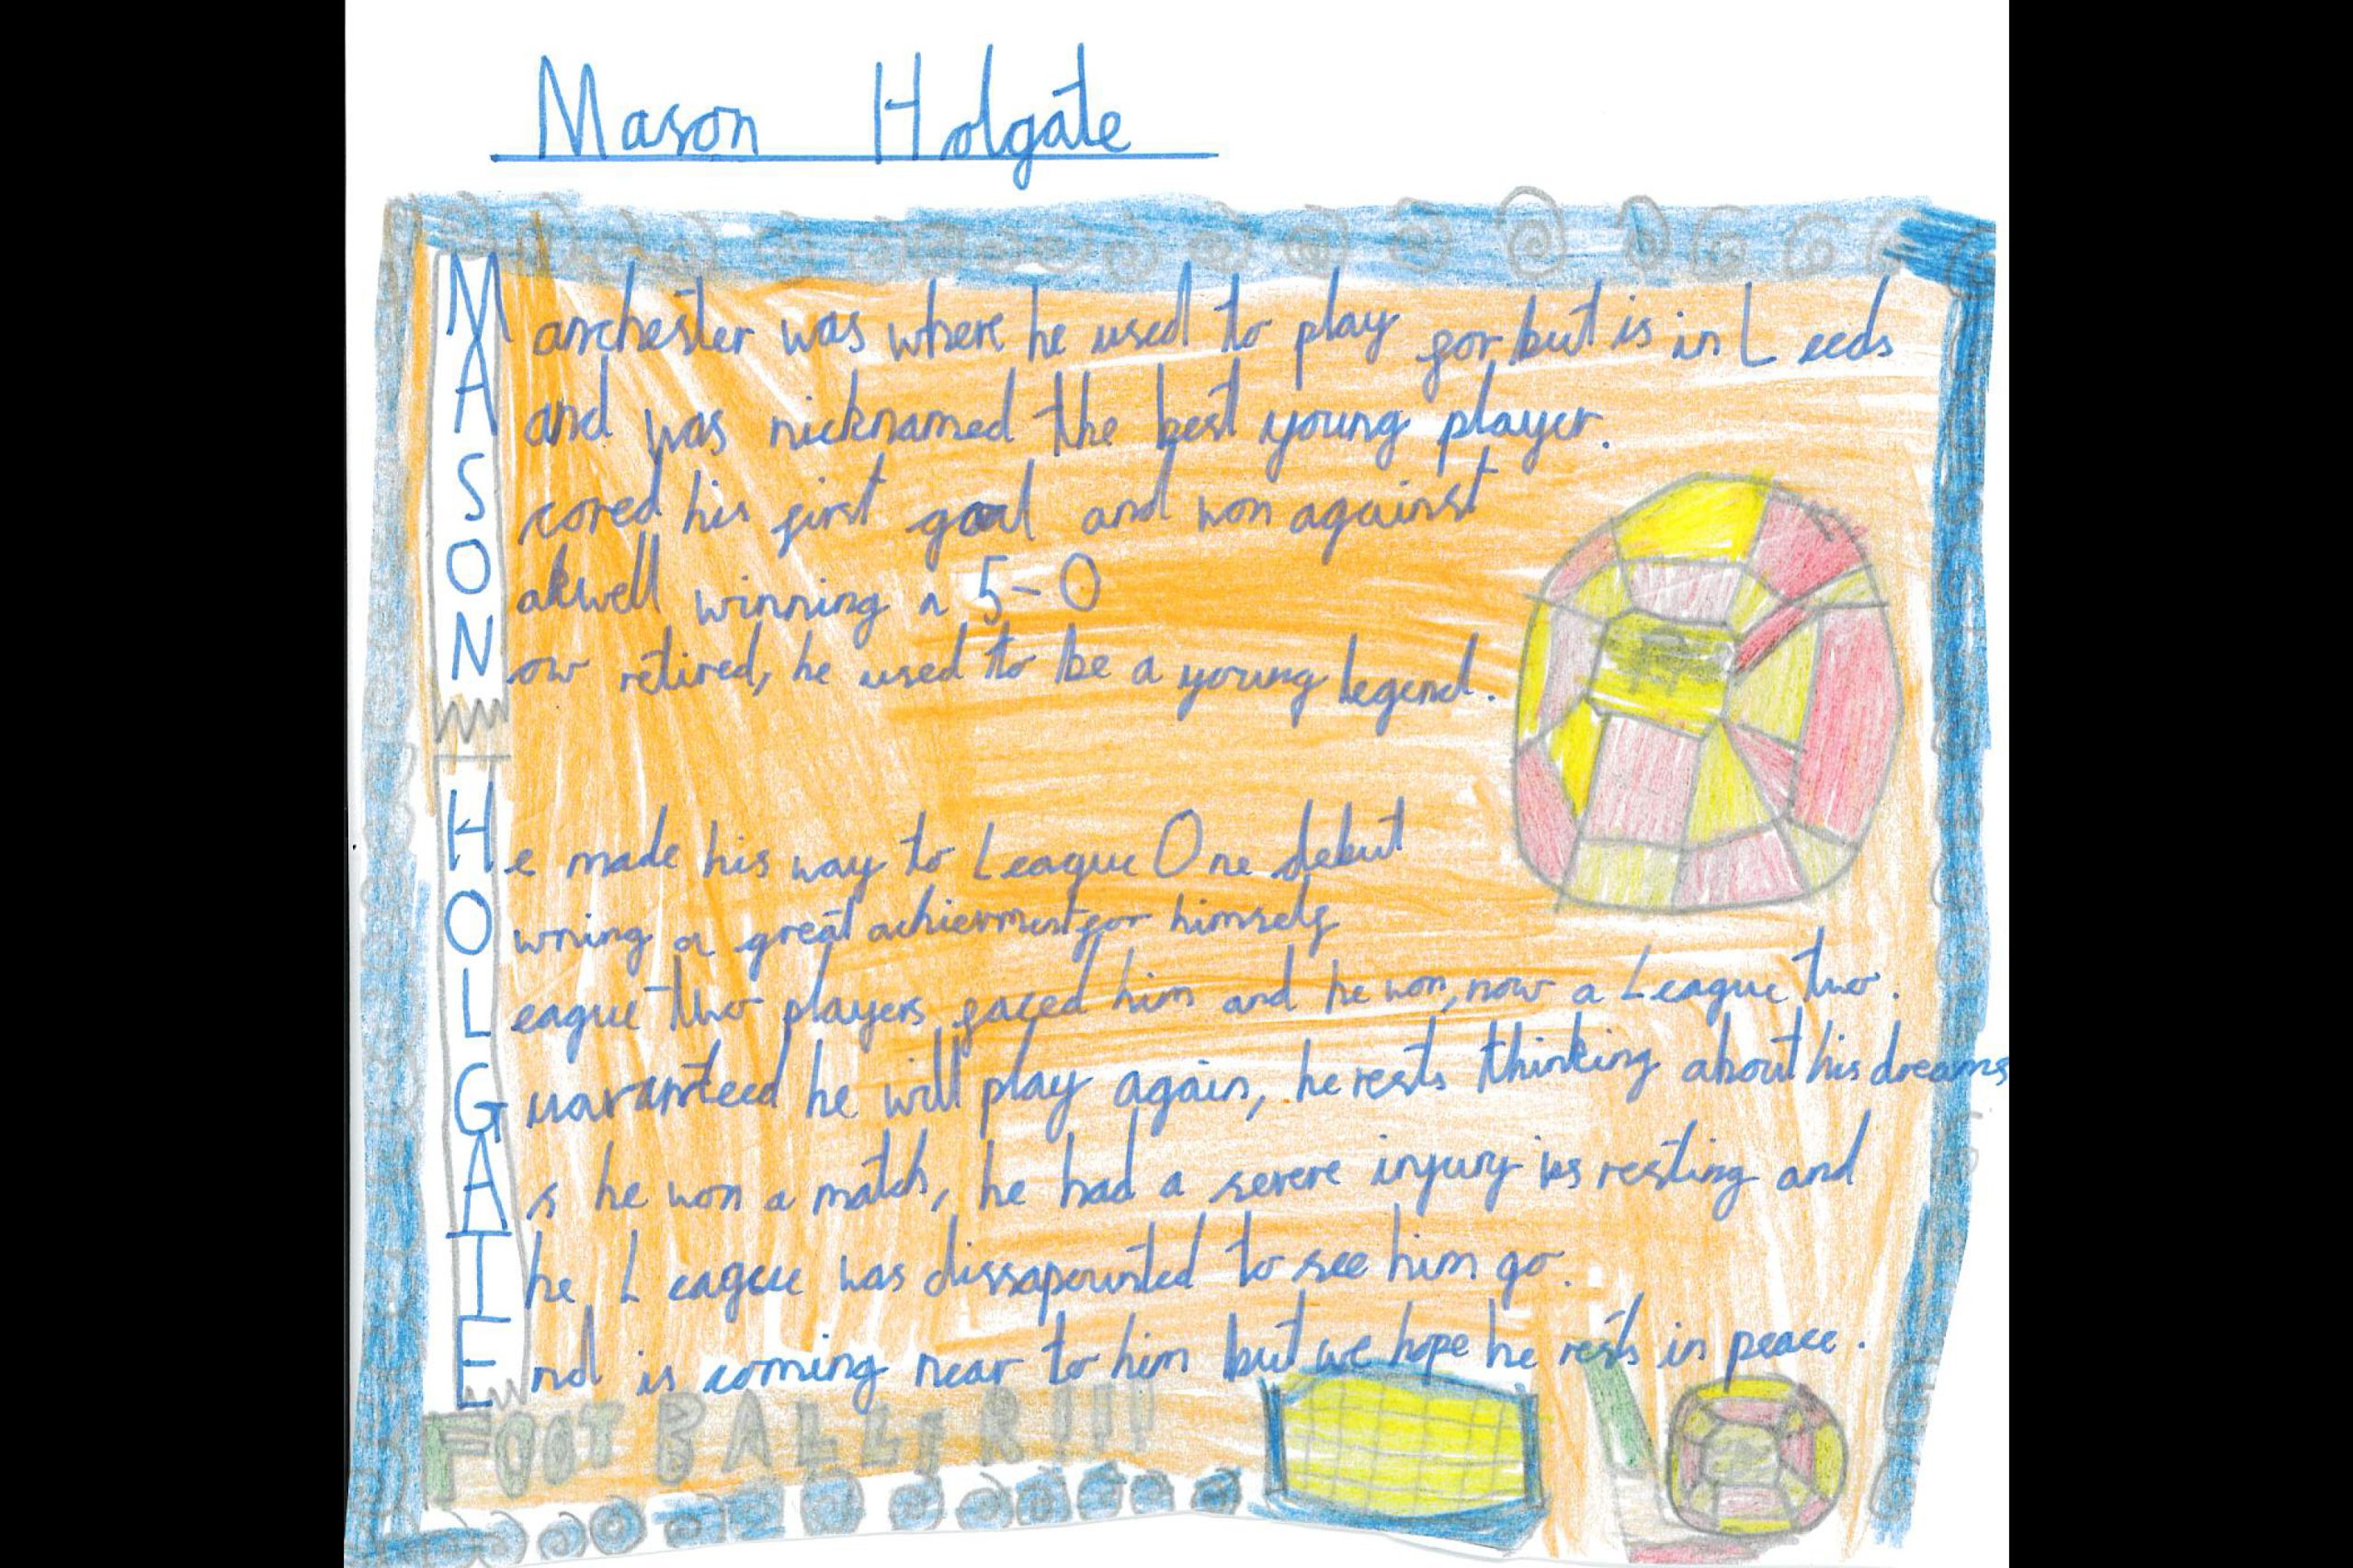 Mason Holgate
Manchester was where he used to play for but is in Leeds
And was nicknamed the best young player.
Scored his first goal and won against
Oakwell winning a 5-0
Now retired, he used to be a young legend.
He made his way to League One debut
Owning a great achievment for himself
League two players faced him and he won, now a League two.
Guaranteed he will play again, he rests thinking about his dreams
As he won a match, he had a severe injury is resting and
The League was dissapointed to see him go.
End is coming near to him but we hope he rests in peace.
FOOTBALLER!!!